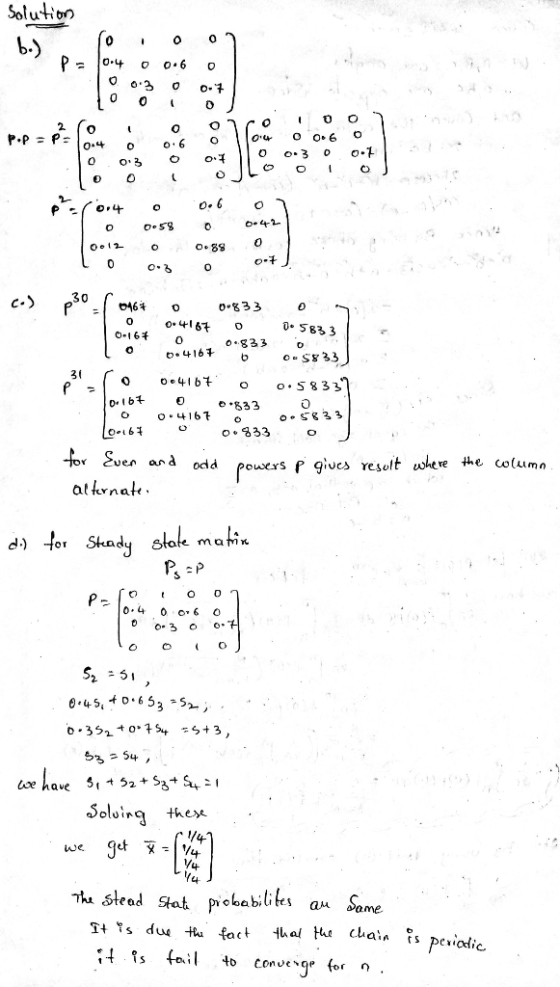 Solution
b.)
P = [ 0 1 0 0
0.4 0 0.6 0
0 0.3 0 0.7
0 0 1 0 ]
P.P = P² = [ 0 1 0 0 ] [ 0 1 0 0 ]
[ 0.4 0 0.6 0 ] [ 0.4 0 0.6 0 ]
[ 0 0.3 0 0.7 ] [ 0 0.3 0 0.7 ]
[ 0 0 1 0 ] [ 0 0 1 0 ]
P² = [ 0.4 0 0.6 0
0 0.58 0 0.42
0.12 0 0.88 0
0 0.3 0 0.7 ]
c.) P³⁰ = [ 0167 0 0.833 0
0 0.4167 0 0.5833
0.167 0 0.833 0
0 0.4167 0 0.5833 ]
P³¹ = [ 0 0.4167 0 0.5833
0.167 0 0.833 0
0 0.4167 0 0.5833
0.167 0 0.833 0 ]
for Even and odd powers P gives result where the column
alternate.
d.) for Steady state matrix
Pₛ = P
P = [ 0 1 0 0
0.4 0 0.6 0
0 0.3 0 0.7
0 0 1 0 ]
S₂ = S1,
0.4S₁ + 0.6S₃ = S₂,
0.3S₂ + 0.7S₄ = S+3,
S₃ = S₄,
we have S₁ + S₂ + S₃ + S₄ = 1
Solving these
we get x̄ = [ 1/4
1/4
1/4
1/4 ]
The Stead State probabilites are Same
It is due the fact that the chain is periodic
it is fail to converge for n.